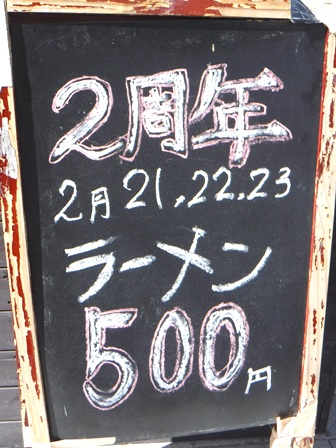 2周年
2月21,22,23
ラーメン
500円